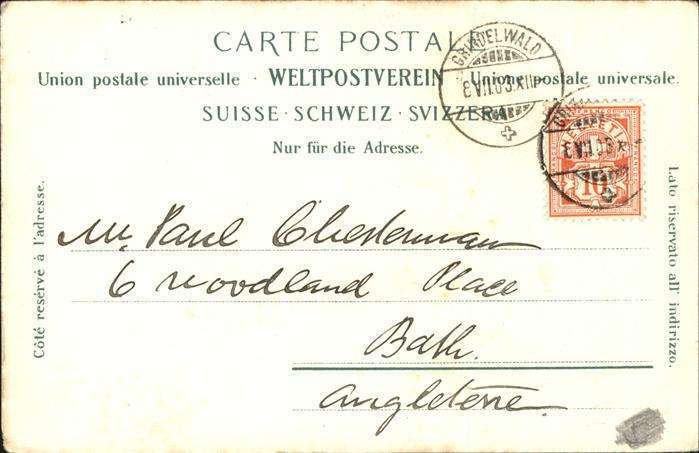 CARTE POSTALE
GRINDELWALD
3.VII.03.XII
Union postale universelle · WELTPOSTVEREIN · Unione postale universale.
SUISSE · SCHWEIZ · SVIZZERA
Nur für die Adresse.
HELVETIA
3.VII.03.X
10
Côté réservé à l'adresse.
Lato riservato all' indirizzo.
Mr. Paul Chesterman
6 Woodland Place
Bath.
Angleterre.